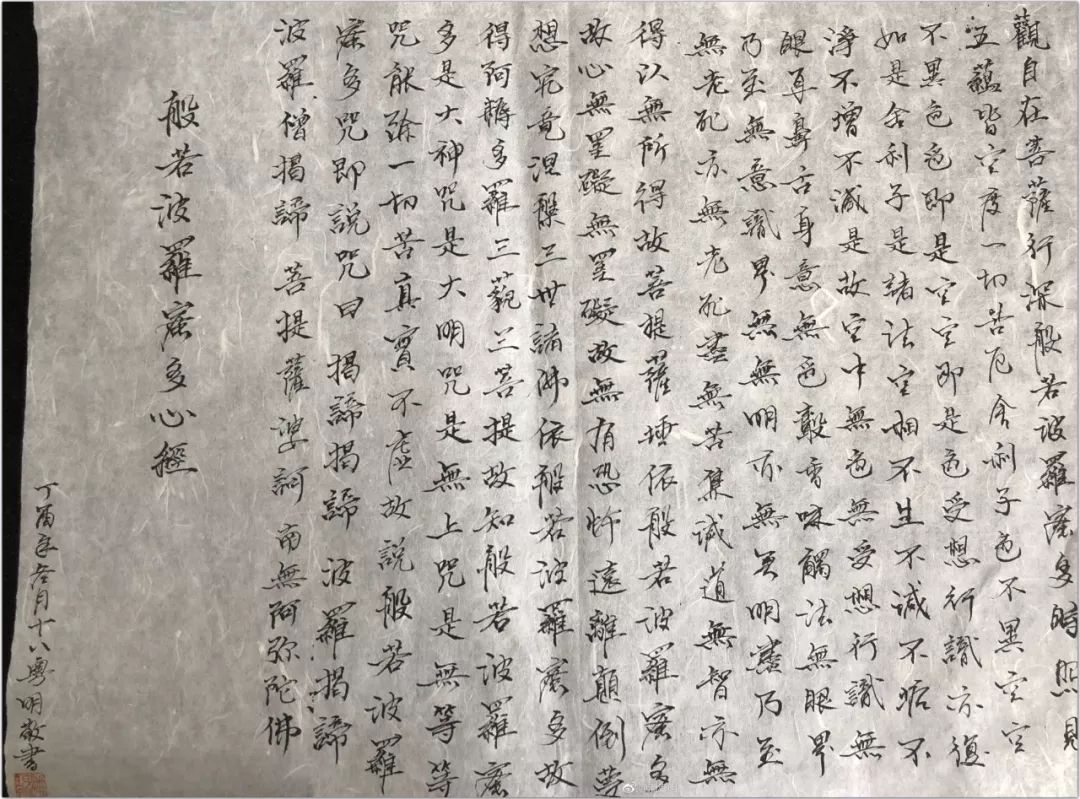 觀自在菩薩行深般若波羅蜜多時照見
五蘊皆空度一切苦厄舍利子色不異空空
不異色色即是空空即是色受想行識亦復
如是舍利子是諸法空相不生不滅不垢不
淨不增不減是故空中無色無受想行識無
眼耳鼻舌身意無色聲香味觸法無眼界
乃至無意識界無無明亦無無明盡乃至
無老死亦無老死盡無苦集滅道無智亦無
得以無所得故菩提薩埵依般若波羅蜜多
故心無罣礙無罣礙故無有恐怖遠離顛倒夢
想究竟涅槃三世諸佛依般若波羅蜜多故
得阿耨多羅三藐三菩提故知般若波羅蜜
多是大神咒是大明咒是無上咒是無等等
咒能除一切苦真實不虛故說般若波羅
蜜多咒即說咒曰 揭諦揭諦 波羅揭諦
波羅僧揭諦 菩提薩婆訶 南無阿弥陀佛
般若波羅蜜多心經
丁酉年冬月十八粵明敬書